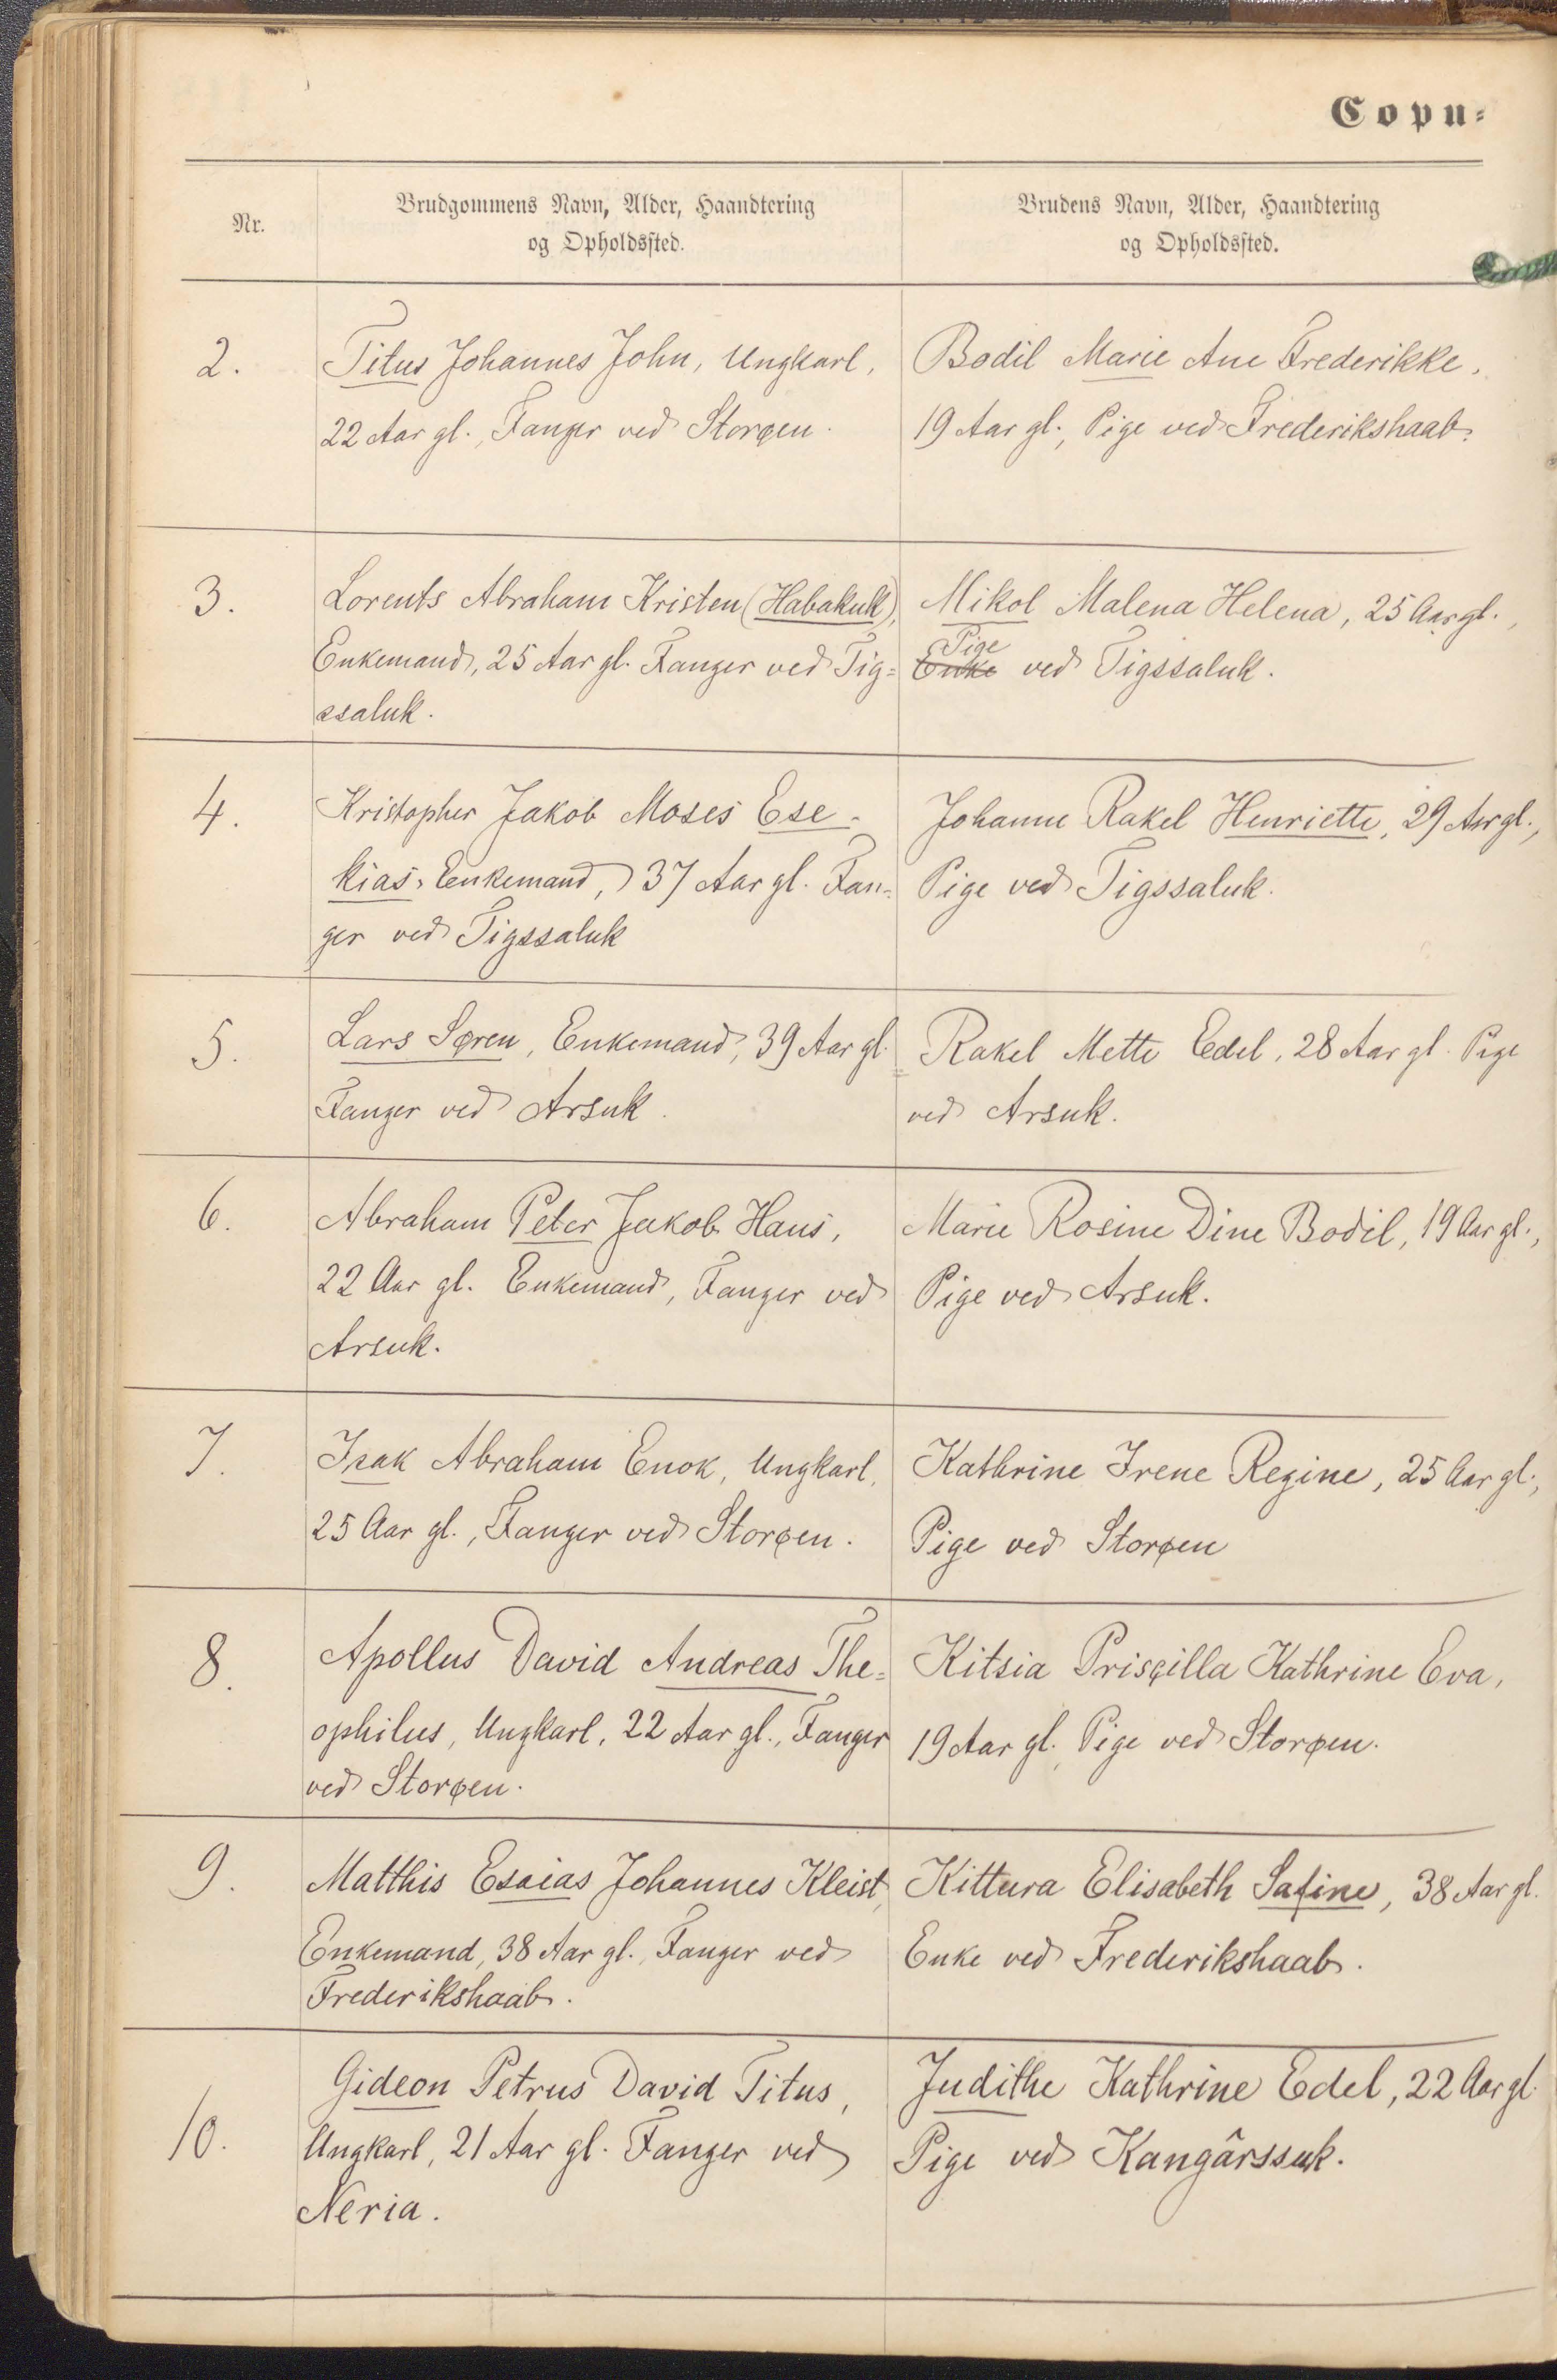 Copu-
Nr.
Brudgommens Navn, Alder, Haandtering
og Opholdssted.
Brudens Navn, Alder, Haandtering
og Opholdssted.
2.
Titus Johannes John, Ungkarl,
22 Aar gl., Fanger ved Storøen.
Bodil Marie Ane Frederikke,
19 Aar gl., Pige ved Frederikshaab.
3.
Lorents Abraham Kristen (Habakuk),
Enkemand, 25 Aar gl. Fanger ved Tig=
ssaluk.
Mikol Malena Helena, 25 Aar gl.,
Pige
Enke ved Tigssaluk.
4.
Kristopher Jakob Moses Ese-
kias, Enkemand, 37 Aar gl. Fan=
ger ved Tigssaluk
Johanne Rakel Henriette, 29 Aar gl.,
Pige ved Tigssaluk.
5.
Lars Søren, Enkemand, 39 Aar gl.
Fanger ved Arsuk.
Rakel Mette Edel, 28 Aar gl. Pige
ved Arsuk.
6.
Abraham Peter Jakob Hans,
22 Aar gl. Enkemand, Fanger ved
Arsuk.
Marie Rosine Dine Bodil, 19 Aar gl.,
Pige ved Arsuk.
7.
Isak Abraham Enok, Ungkarl,
25 Aar gl., Fanger ved Storøen.
Kathrine Irene Regine, 25 Aar gl.,
Pige ved Storøen
8.
Apollus David Andreas The=
ophilus, Ungkarl, 22 Aar gl., Fanger
ved Storøen.
Kitsia Priscilla Kathrine Eva,
19 Aar gl., Pige ved Storøen.
9.
Matthis Esaias Johannes Kleist,
Enkemand, 38 Aar gl., Fanger ved
Frederikshaab.
Kittura Elisabeth Safine, 38 Aar gl.
Enke ved Frederikshaab.
10.
Gideon Petrus David Titus,
Ungkarl, 21 Aar gl. Fanger ved
Neria.
Judithe Kathrine Edel, 22 Aar gl.
Pige ved Kangârssuk.